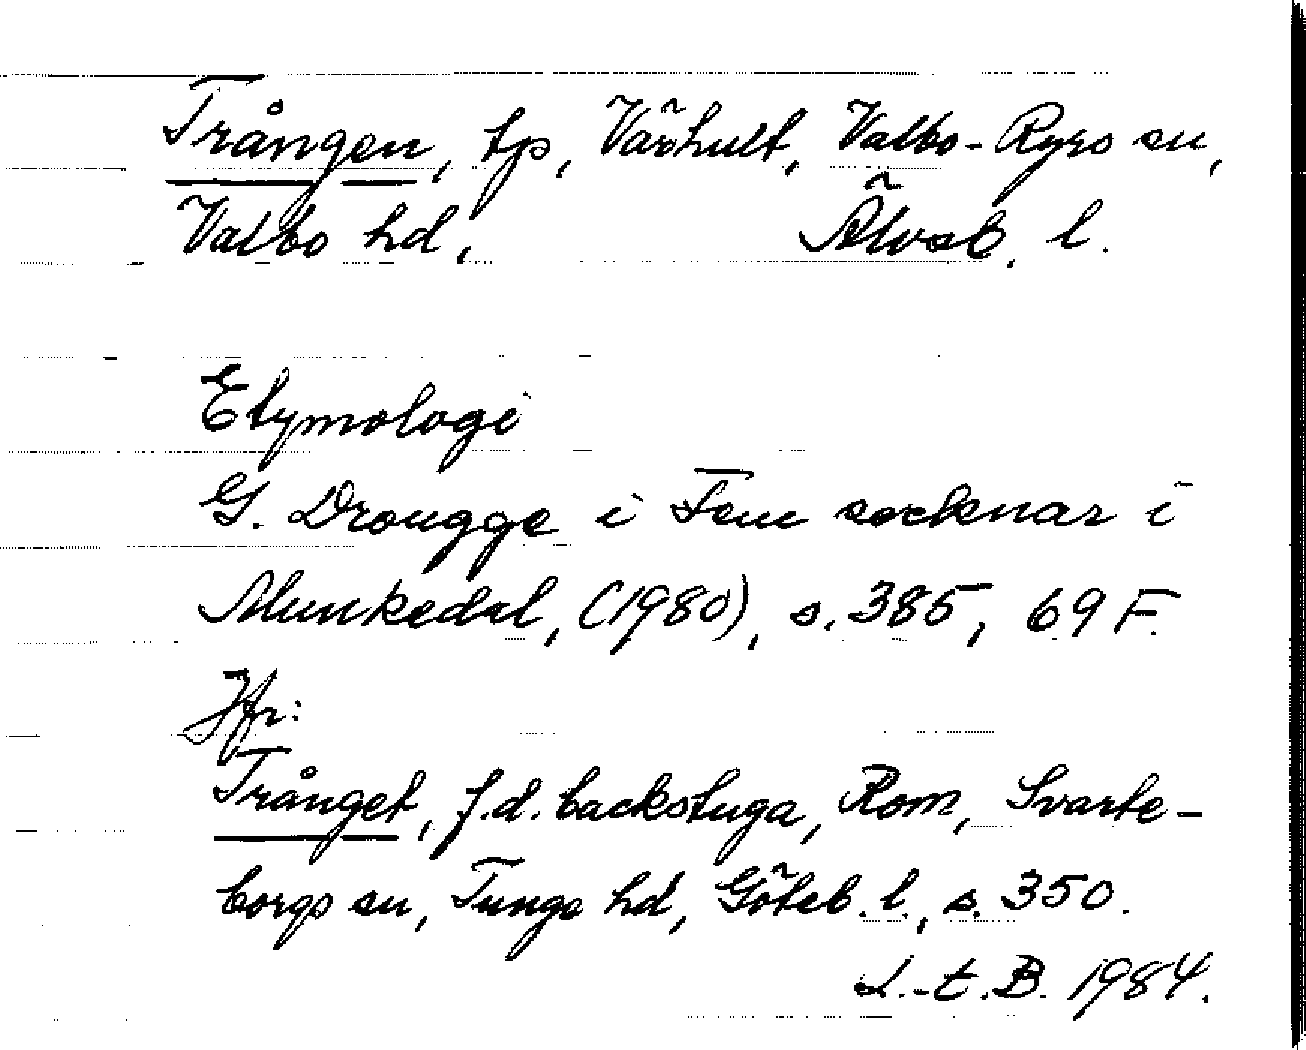 Trången, tp, Värhult, Valbo-Ryrs sn,
Valbo hd, Älvsb. l.
Etymologi
G. Drougge i Fem socknar i
Munkedal, (1980), s. 385, 69 F.
Jfr:
Trånget, f.d. backstuga, Rom, Svarte-
borgs sn, Tunge hd, Göteb. l., s. 350.
L.-E. B. 1984.